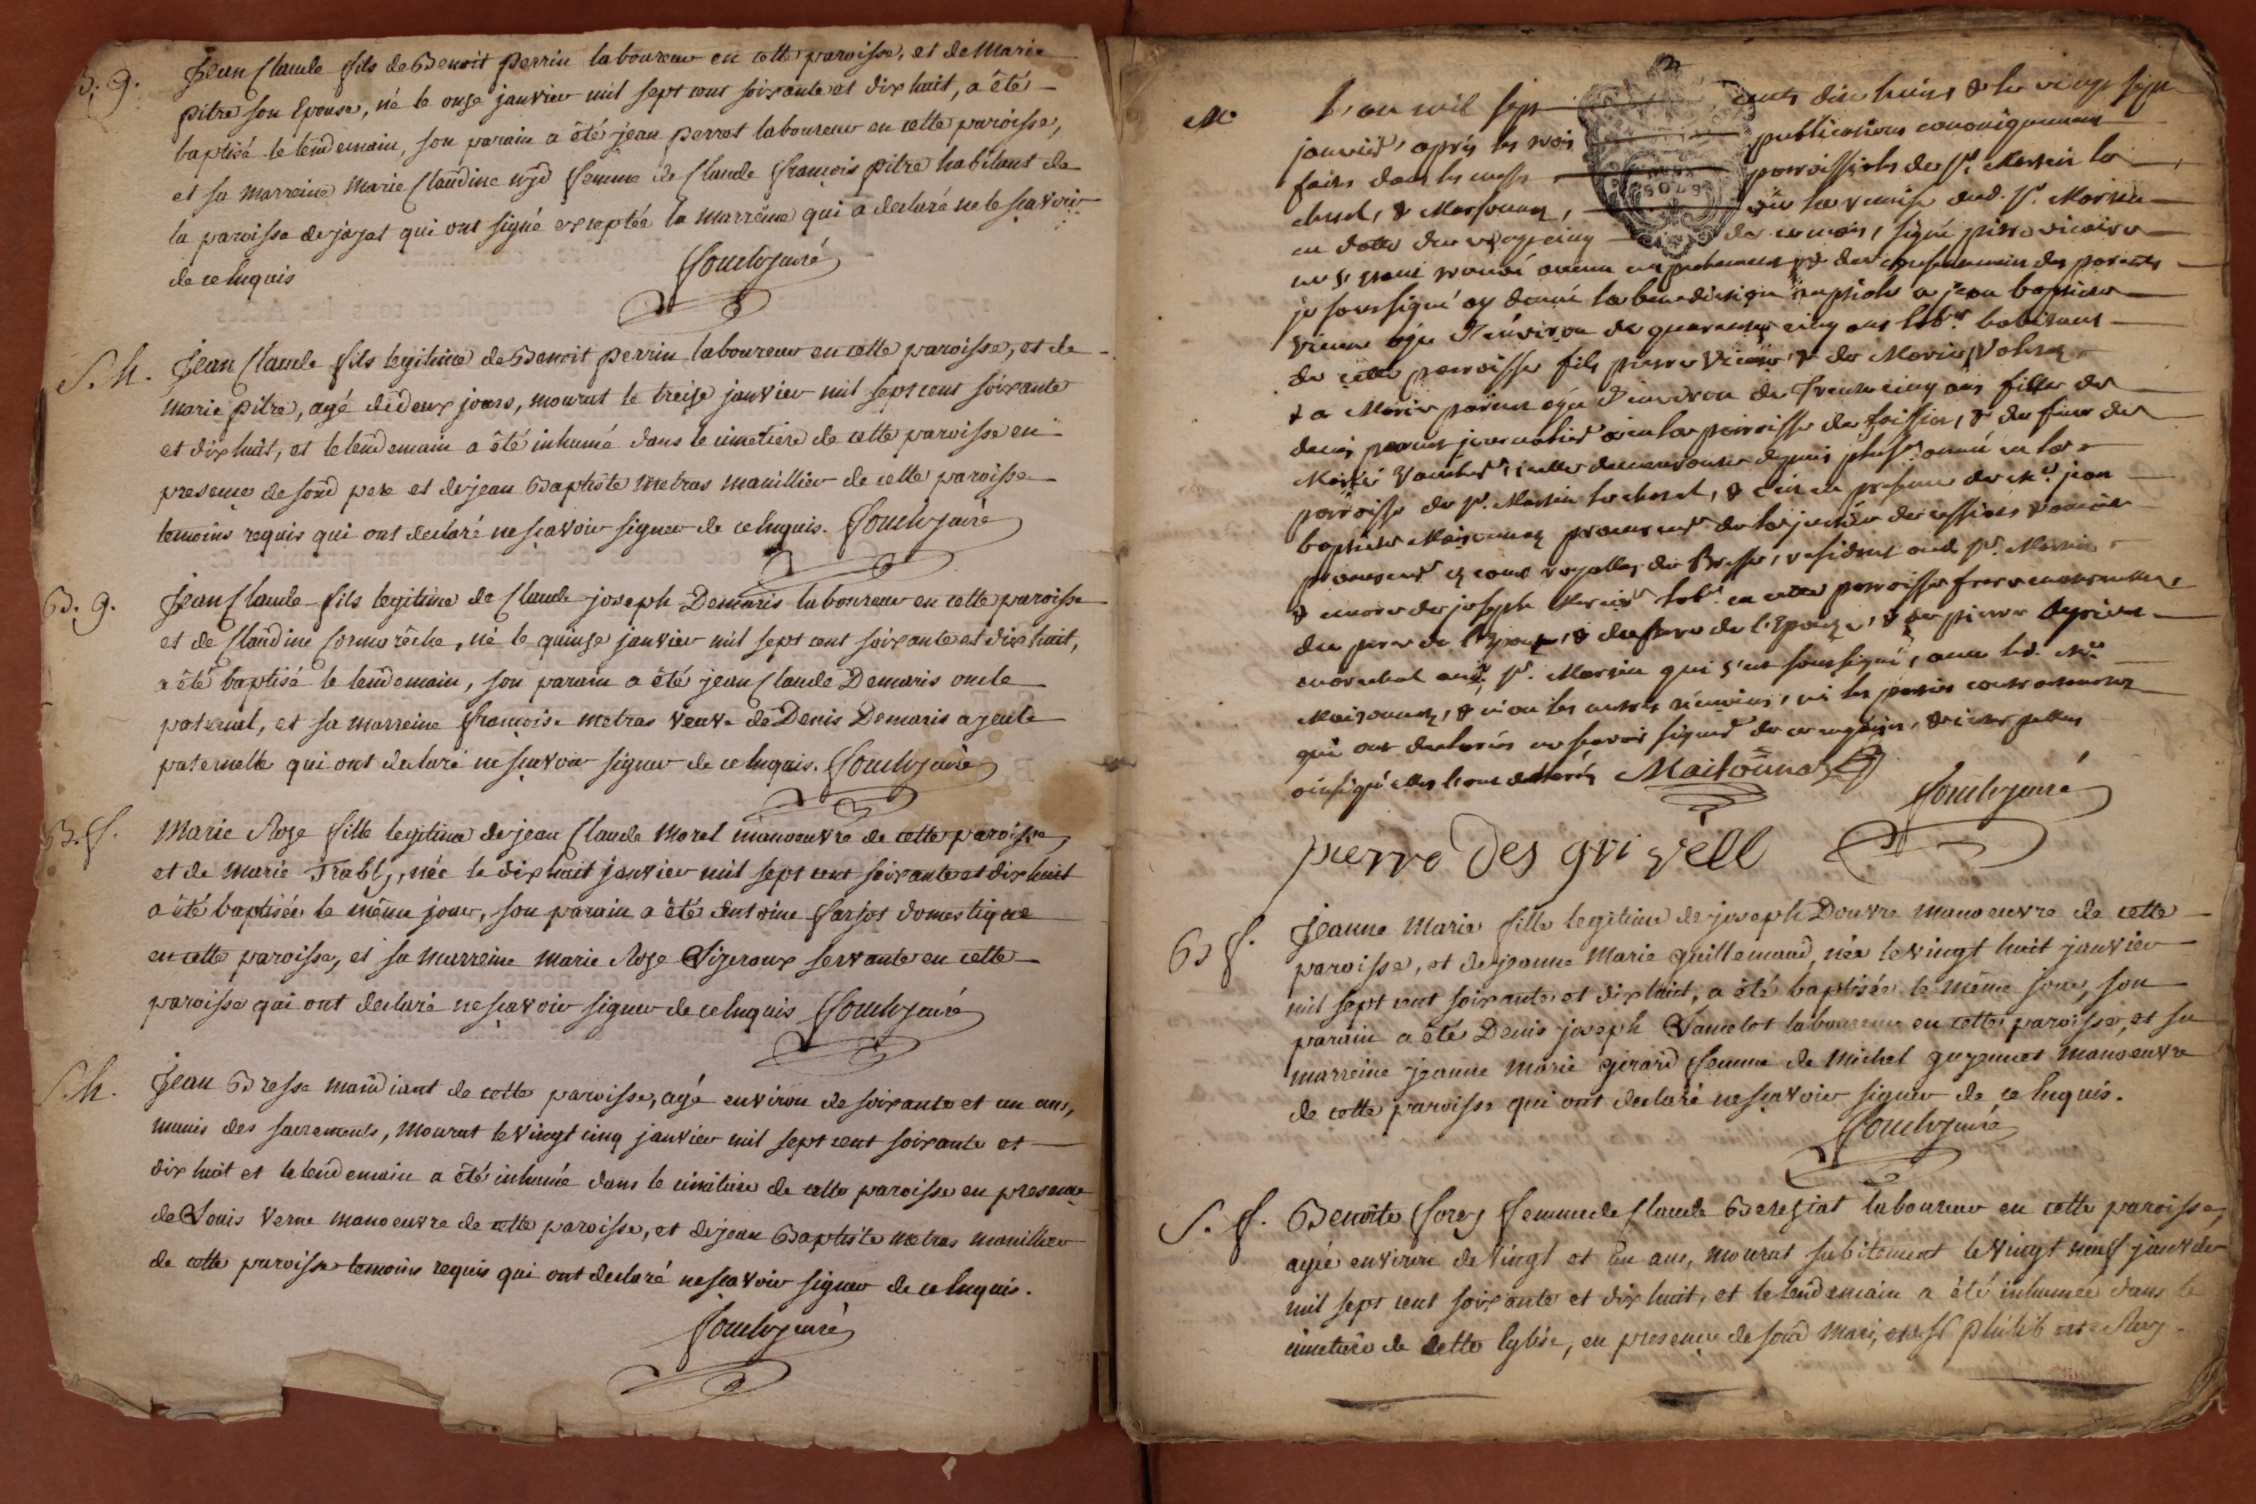 B. g.
Jean Claude fils de Benoit Perrin laboureur en cette paroisse, et de Marie
pitre son Epouse, né le onze janvier mil sept cent soixante et dix huit, a été
baptisé le lendemain, son parain a été jean perrot laboureur en cette paroisse,
et sa marreine Marie Claudine femme de Claude françois pitre habitant de
la paroisse de jajat qui ont signé exceptée la marreine qui a declaré ne le sçavoir
de ce Enquis
S. h.
Jean Claude fils legitime de Benoit perrin laboureur en cette paroisse, et de
marie pitre, agé de deux jours, mourut le treize janvier mil sept cent soixante
et dix huit, et le lendemain a été inhumé dans le cimetiere de cette paroisse en
presence de sond pere et de jean Baptiste metras manillier de cette paroisse
temoins requis qui ont declaré ne sçavoir signer de ce Enquis.
B. g.
Jean Claude fils legitime de Claude joseph Demaris laboureur en cette paroisse
et de Claudine Cormoréche, né le quinze janvier mil sept cent soixante et dix huit,
a été baptisé le lendemain, son parain a été jean Claude Demaris oncle
paternel, et sa marreine françoise metras veuve de Denis Demaris ayeule
paternelle qui ont declaré ne sçavoir signer de ce Enquis.
B. f.
Marie Roze fille legitime de jean Claude Morel manoeuvre de cette paroisse,
et de marie Trably, née le dix huit janvier mil sept cent soixante et dix huit
a été baptisée le même jour, son parain a été Antoine farjot domestique
en cette paroisse, et sa marreine marie Roze servante en cette
paroisse qui ont declaré ne sçavoir signer de ce Enquis
S. h.
Jean Bresse mandiant de cette paroisse, agé environ de soixante et un ans,
munis des sacrements, mourut le vingt cinq janvier mil sept cent soixante et
dix huit et le lendemain a été inhumé dans le cimitiere de cette paroisse en presence
de Louis Verne manoeuvre de cette paroisse, et de jean Baptiste metras manillier
de cette paroisse temoins requis qui ont declaré ne sçavoir signer de ce Enquis.
M.
L'an mil sept dix huit & le vingt sept
janvier, après les trois publications canoniquement
faites dans les messes paroissiales de St. Martin le
chatel, & Marsonnas, vü la remise dud. St. Martin
en datte du vingt cinq de ce mois, signé vicaire
ne s'etant trouvé aucun empechement & du consentement des parents
je soussigné ay donné la benediction nuptiale a jean baptiste
agé d'environ de quarante cinq ans labr. habitant
de cette paroisse fils pierre & de Marie
& a Marie agée d'environ de trente cinq ans fille de
denis journalier en la paroisse de foissia, & de fiue de
demeurante depuis plusrs. année en la
paroisse de St. Martin le chatel, & ce en presence de Me. jean
baptiste Maisonnas procureur
procureur es cours royalles de Bresse, residant aud. St. Martin
& encore de joseph labr. en cette paroisse frere
du pere de l'Epoux, & du frere de l'Epouse, & de pierre
marechal aud. St. Martin qui s'est soussigné, avec led. Me.
Maisonnas, & non les autres temoins, ni les parties contractantes
qui ont declarés ne sçavoir signer de ce enquis, & interpellés
ainsi qu'elles l'ont déclarés Maisonnas
pierre Des gri vell
B f.
Jeanne Marie fille legitime de joseph Douvre manoeuvre de cette
paroisse, et de jeanne Marie guillemaud, née le vingt huit janvier
mil sept cent soixante et dix huit, a été baptisée le même jour, son
parain a été Denis joseph laboureur en cette paroisse, et sa
marreine jeanne Marie girard femme de michel guyennet manoeuvre
de cette paroisse qui ont declaré ne sçavoir signer de ce Enquis.
S. f.
Benoite Corey femme de Claude Bereziat laboureur en cette paroisse,
agée environ de vingt et un ans, mourut subitement le vingt neuf janvier
mil sept cent soixante et dix huit, et le lendemain a été inhumée dans le
cimetiere de cette Eglise, en presence de sond mari, et de Philibert